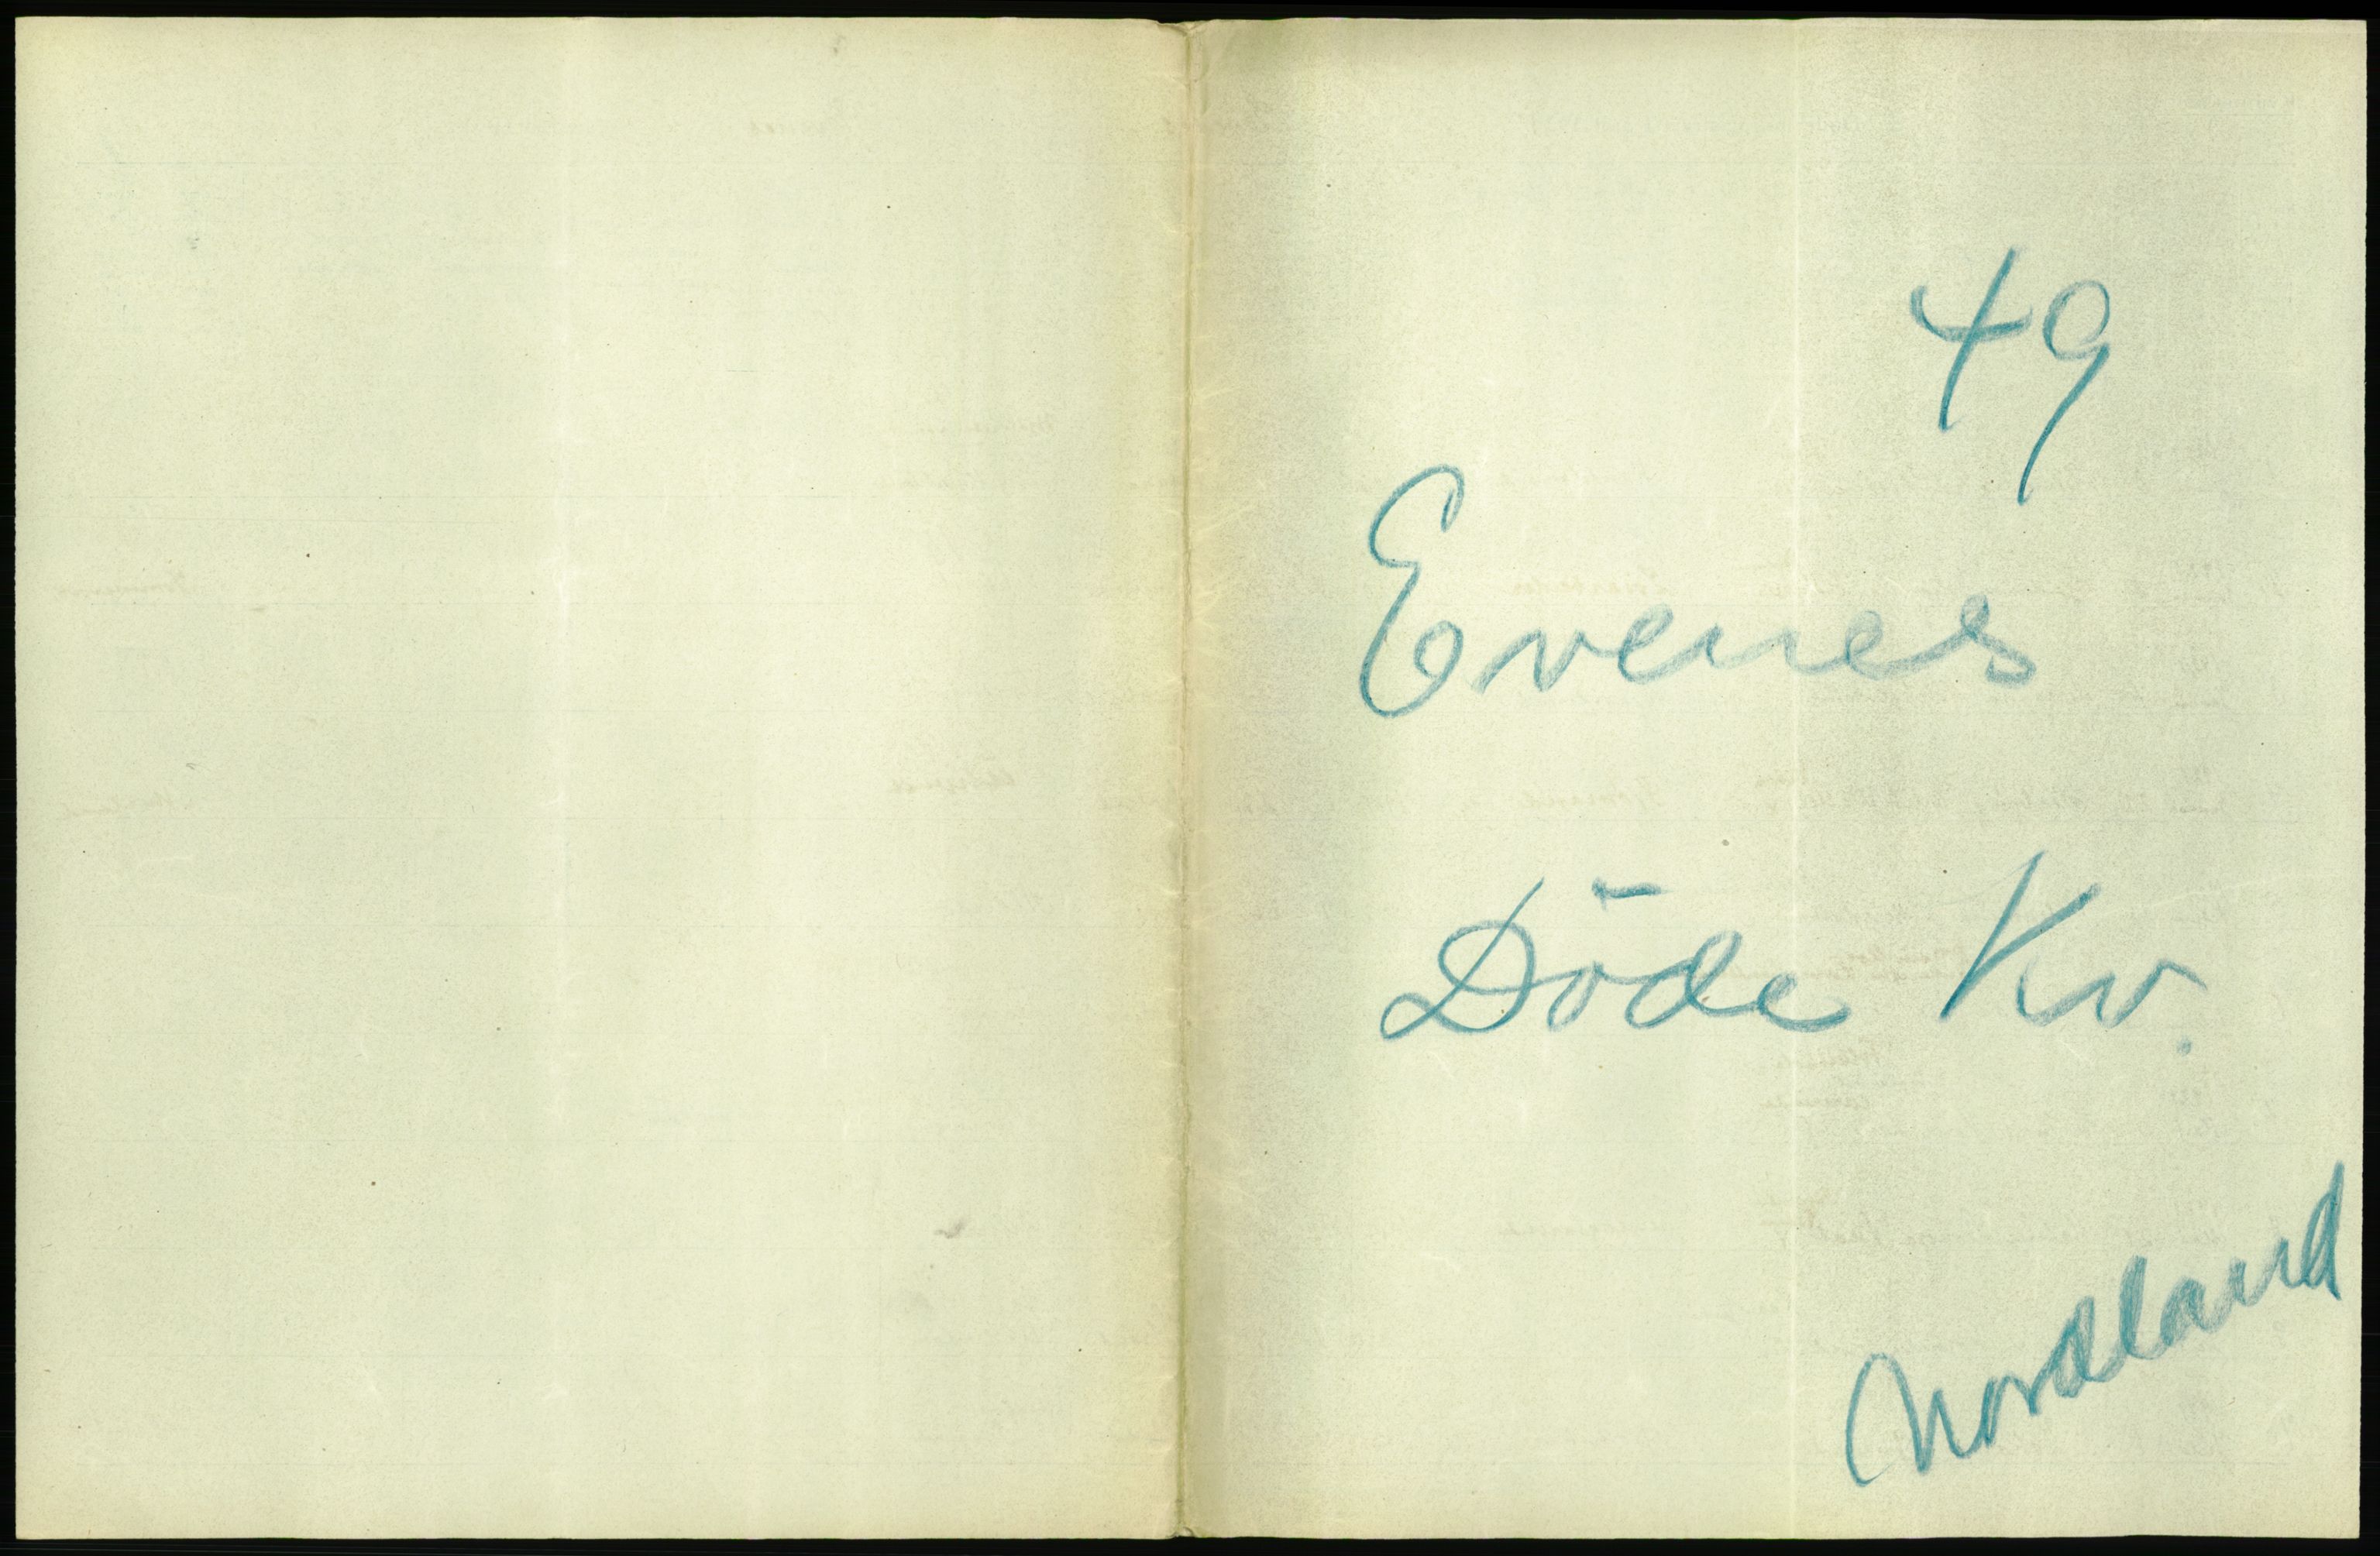 49
Evenes
Döde Kv.
Nordland